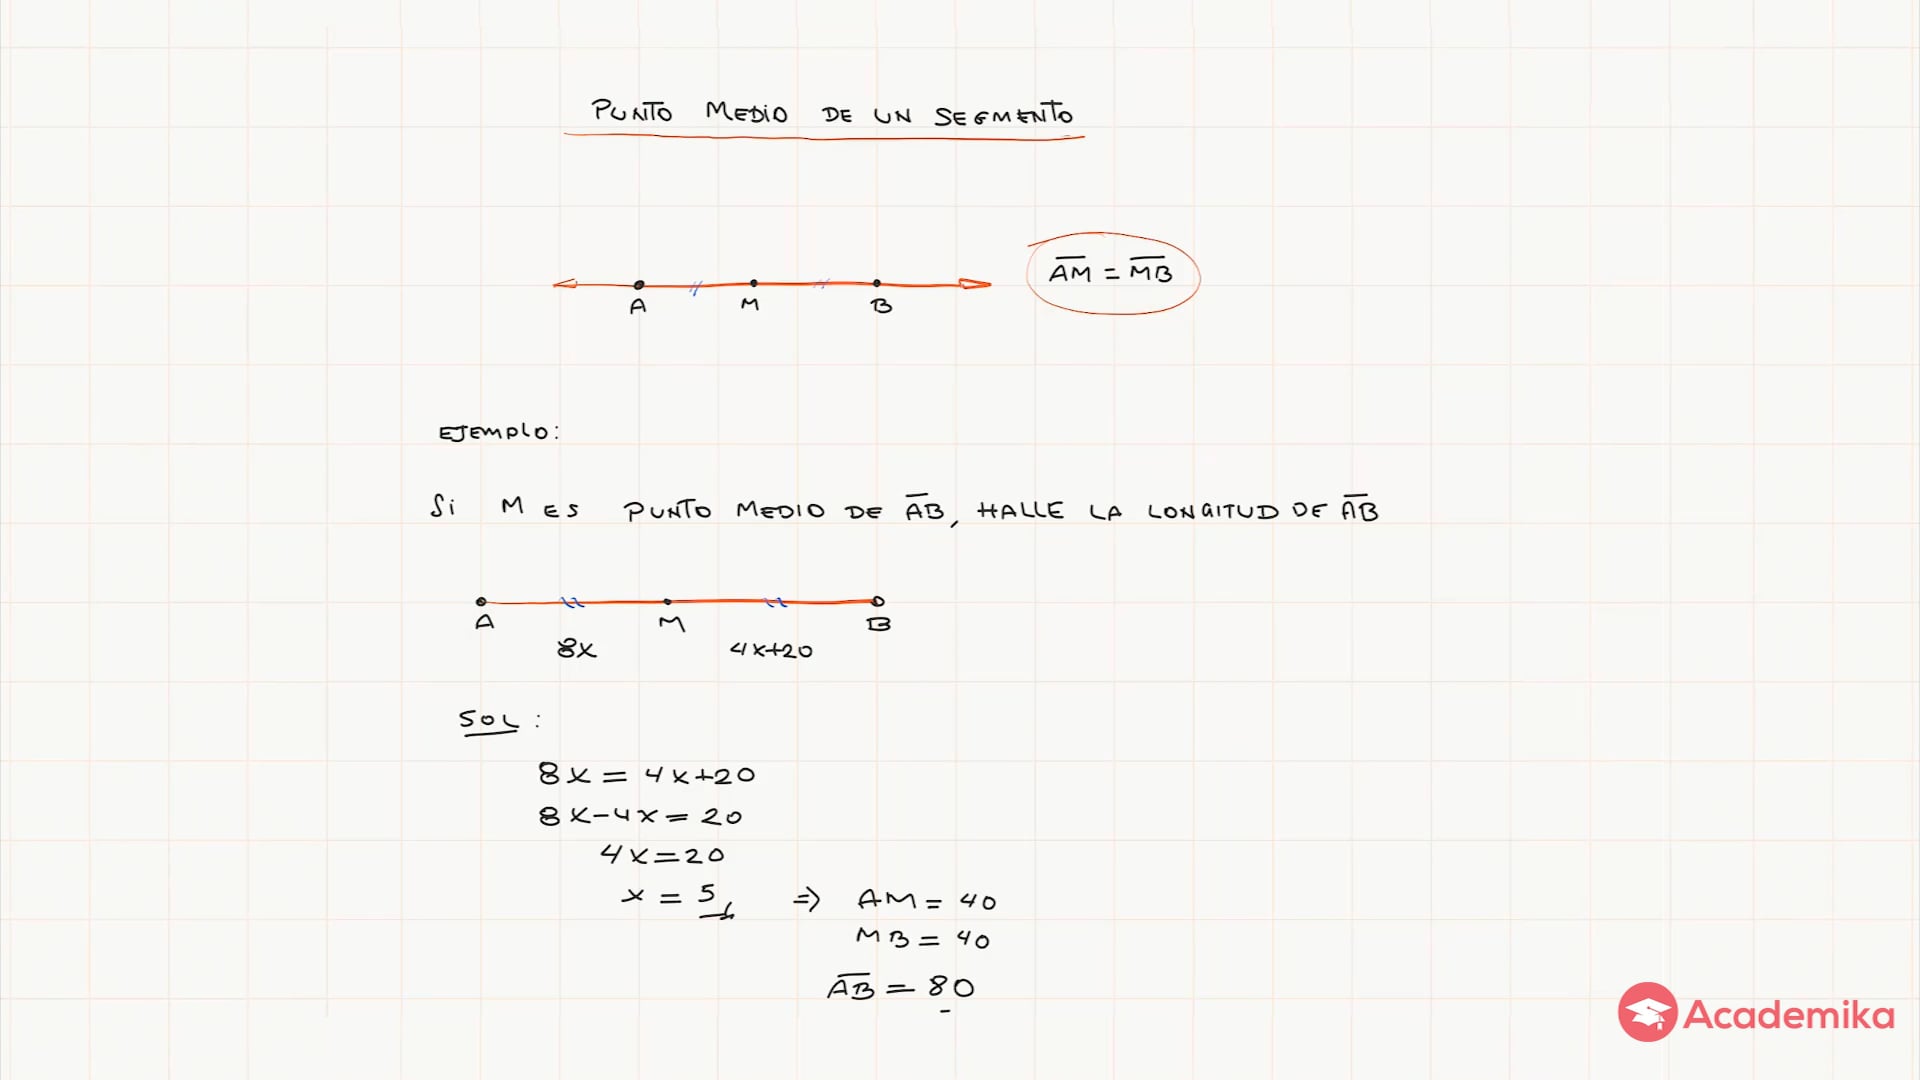 PUNTO MEDIO DE UN SEGMENTO
A M B
A̅M̅ = M̅B̅
EJEMPLO:
Si M ES PUNTO MEDIO DE A̅B̅, HALLE LA LONGITUD DE A̅B̅
A M B
8x 4x+20
SOL:
8x = 4x+20
8x-4x = 20
4x = 20
x = 5 => AM = 40
MB = 40
A̅B̅ = 80
Academika